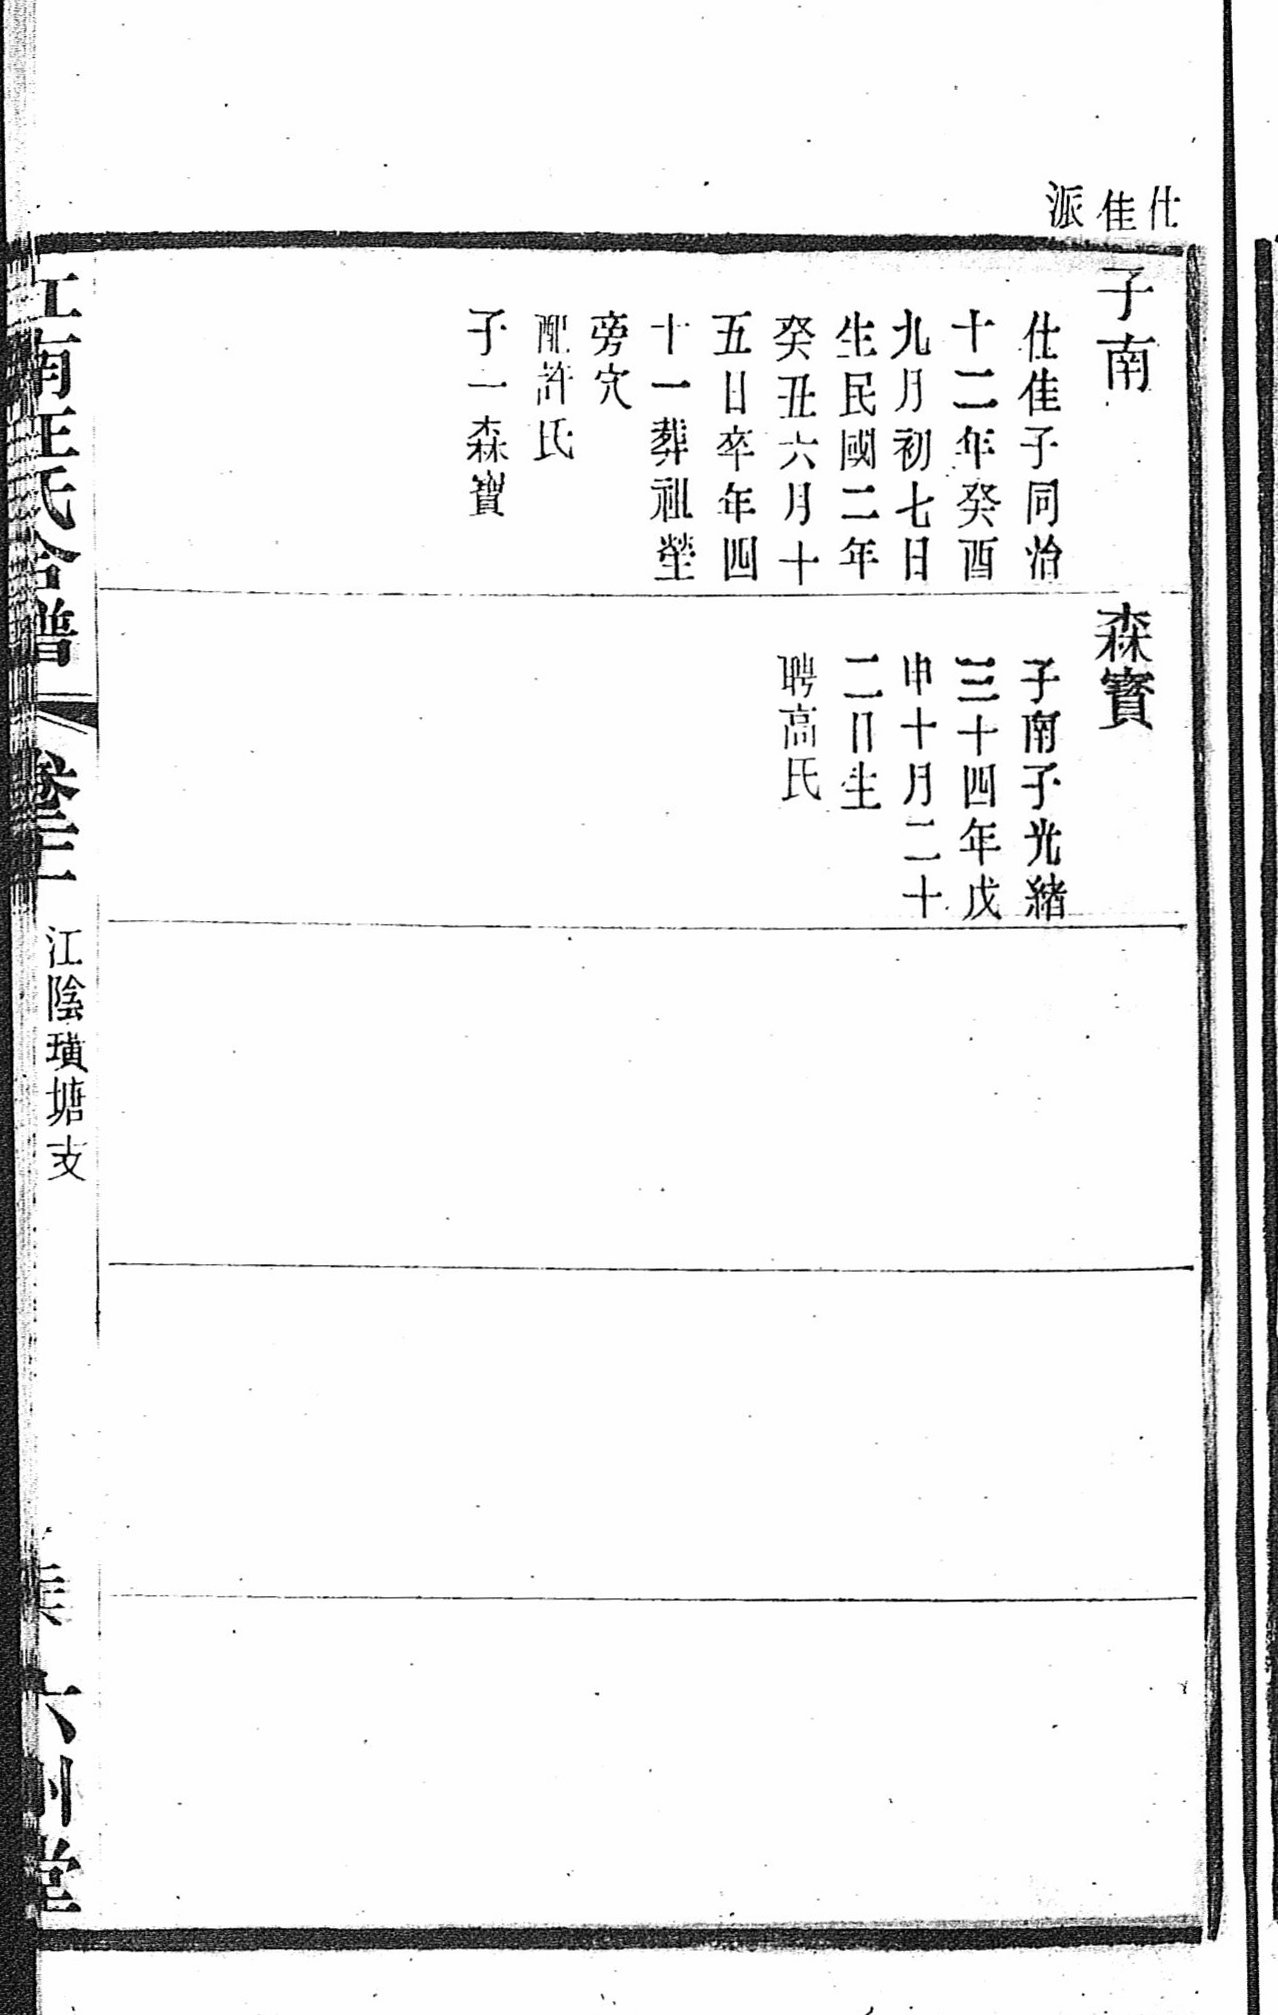 仕佳派
子南
仕佳子同治
十二年癸酉
九月初七日
生民國二年
癸丑六月十
五日卒年四
十一葬祖塋
旁穴
配許氏
子一森寶
森寶
子南子光緒
三十四年戊
申十月二十
二日生
聘高氏
江南汪氏合譜
江陰璜塘支